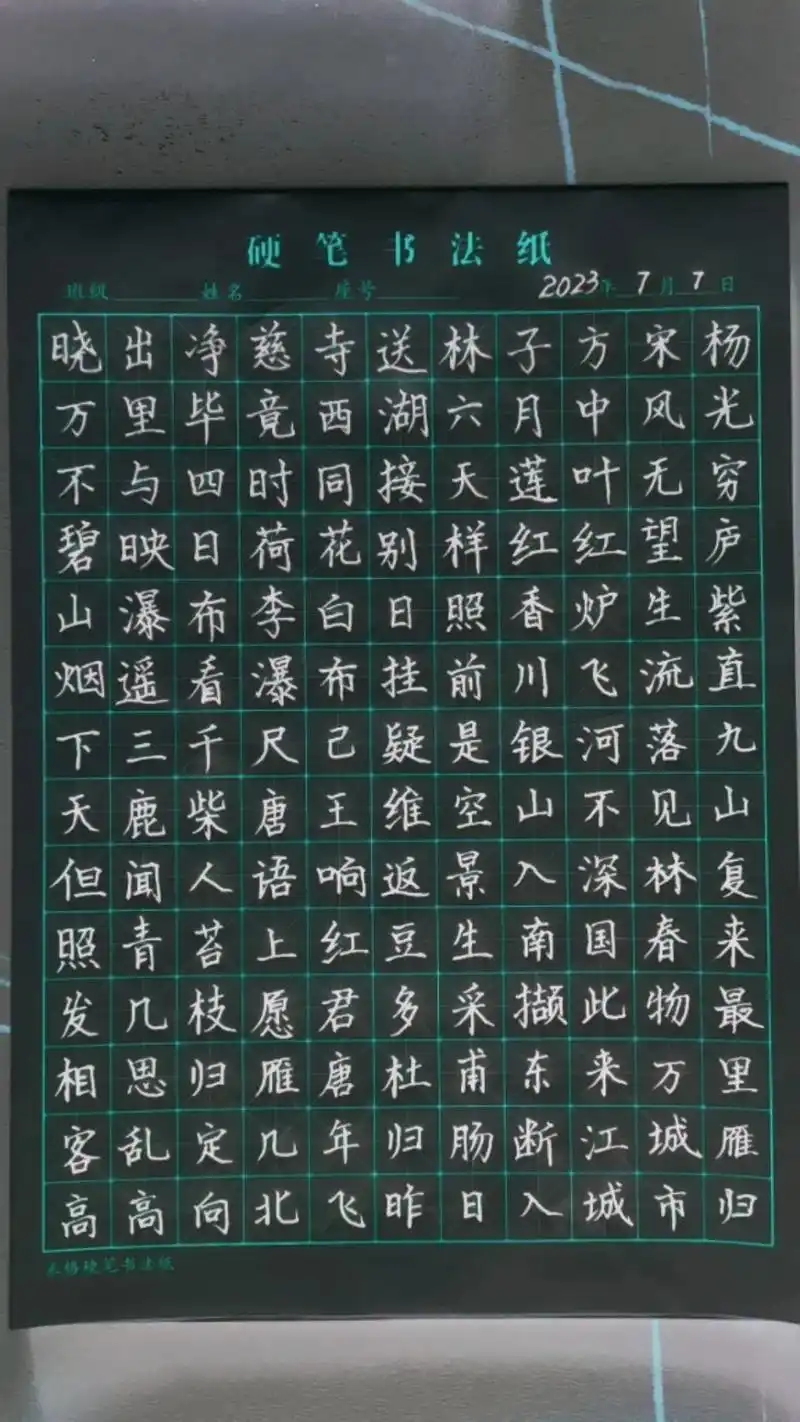 硬笔书法纸
班级 姓名 座号 2023年7月7日
晓出净慈寺送林子方宋杨
万里毕竟西湖六月中风光
不与四时同接天莲叶无穷
碧映日荷花别样红红望庐
山瀑布李白日照香炉生紫
烟遥看瀑布挂前川飞流直
下三千尺己疑是银河落九
天鹿柴唐王维空山不见山
但闻人语响返景入深林复
照青苔上红豆生南国春来
发几枝愿君多采撷此物最
相思归雁唐杜甫东来万里
客乱定几年归肠断江城雁
高高向北飞昨日入城市归
米格硬笔书法纸